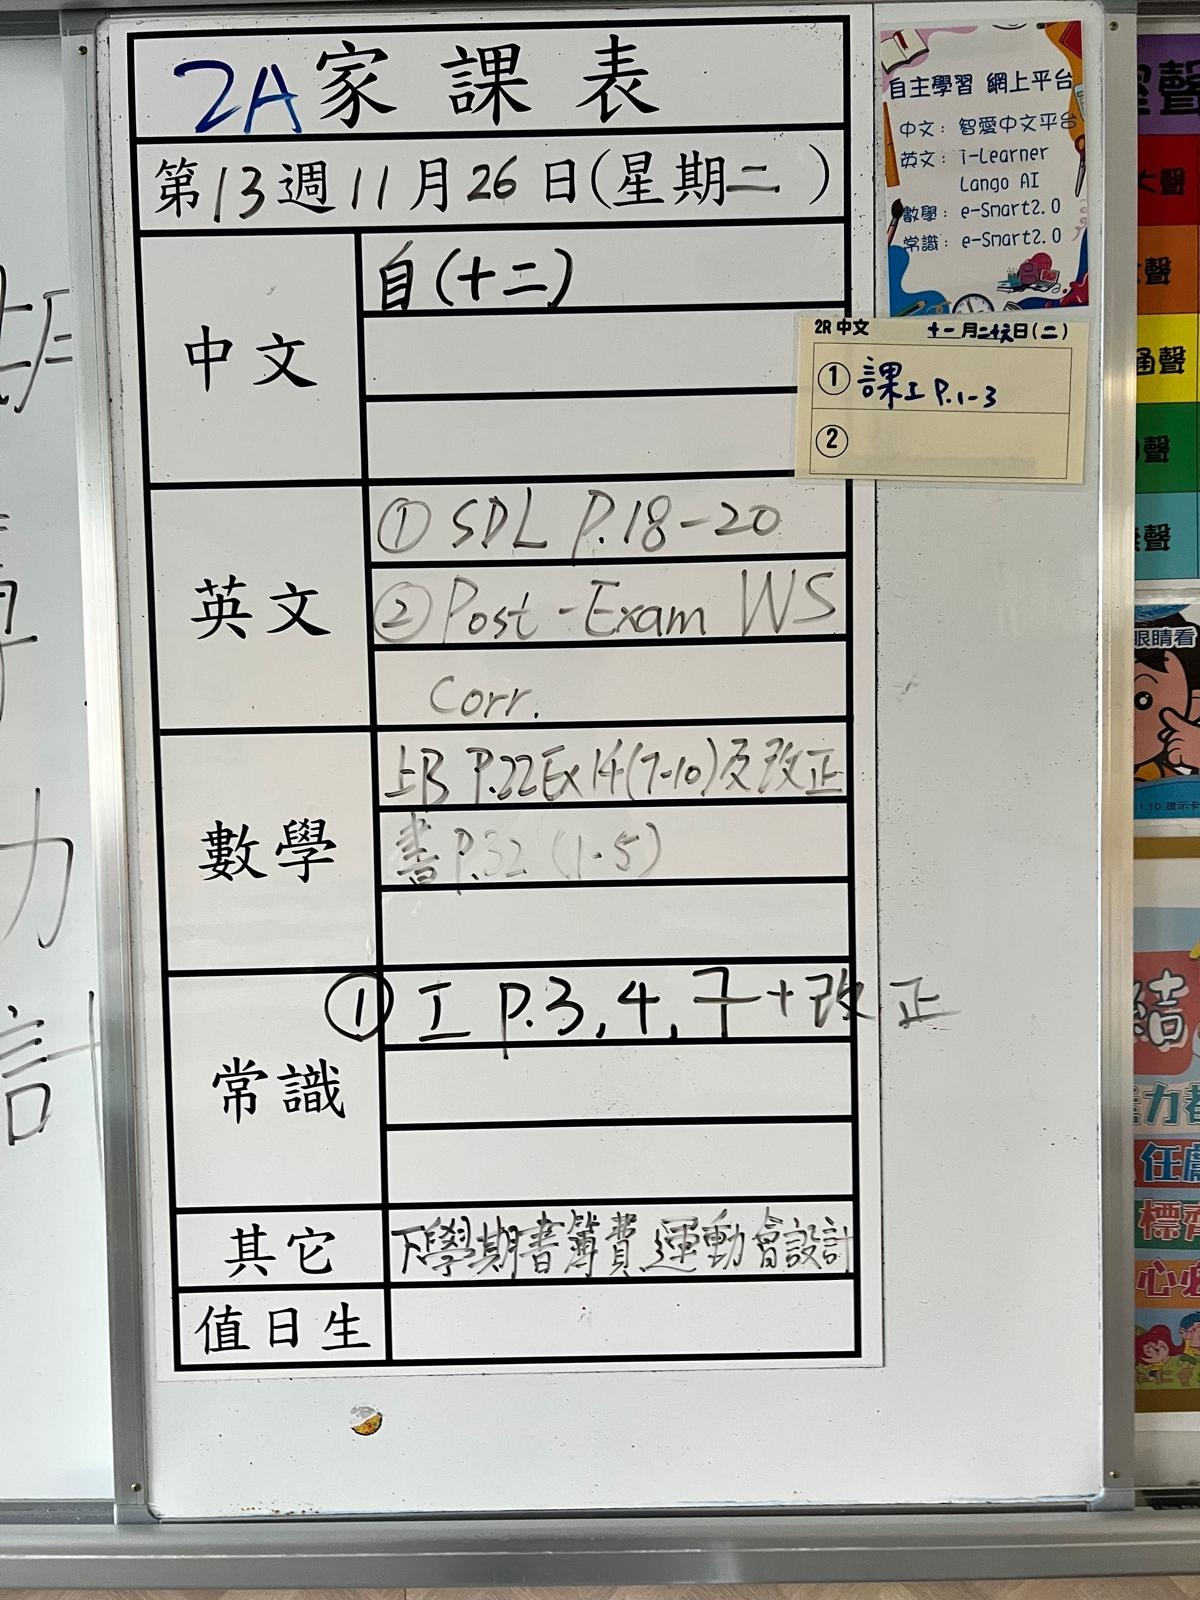 2A 家課表
第13週11月26日(星期二)
中文
自(十二)
英文
① SDL P.18-20
② Post-Exam WS
Corr.
數學
上B P.22 Ex14(7-10)及改正
書P.32 (1-5)
常識
① 工 P.3, 4, 7+改正
其它
下學期書簿費 運動會設計
值日生
自主學習 網上平台
中文：智愛中文平台
英文：i-Learner
Lango AI
數學：e-Smart2.0
常識：e-Smart2.0
2R 中文 十一月二十六日(二)
① 課工 P.1-3
②
眼睛看
1.10 提示卡
力
計
結